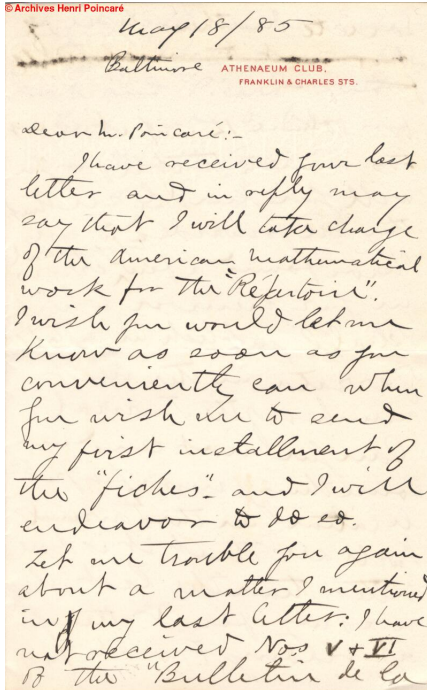 © Archives Henri Poincaré
May 18/85
Baltimore ATHENAEUM CLUB,
FRANKLIN & CHARLES STS.
Dear Mr. Poincaré:–
I have received your last
letter and in reply may
say that I will take charge
of the American mathematical
work for the "Répertoire".
I wish you would let me
know as soon as you
conveniently can when
you wish me to send
my first installment of
the "fiches" and I will
endeavor to do so.
Let me trouble you again
about a matter I mentioned
in my last letter: I have
not received Nos V + VI
of the "Bulletin de la